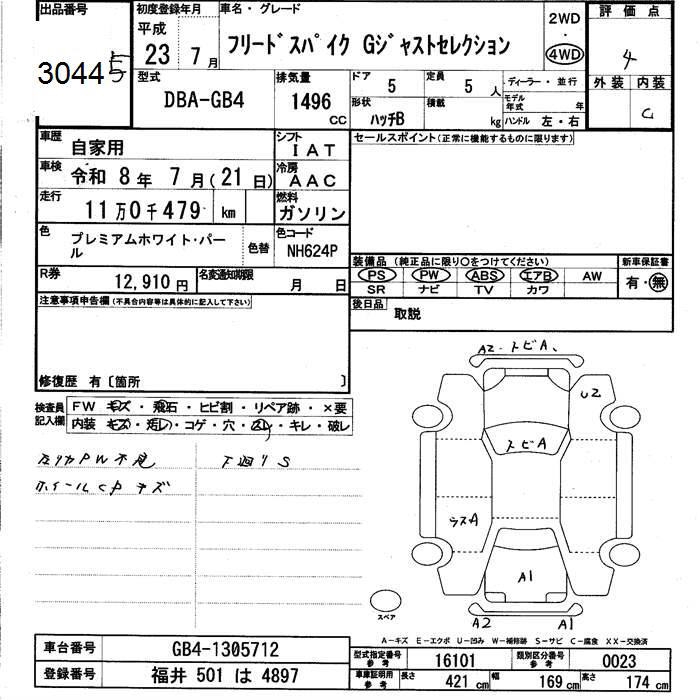 出品番号
3044
初度登録年月
平成
23 年 7 月
車名・グレード
フリードスパイク Gジャストセレクション
2WD
・
4WD
評価点
4
型式
DBA-GB4
排気量
1496
CC
ドア
5
定員
5 人
ディーラー・並行
形状
ハッチB
積載
kg
モデル年式
年
ハンドル 左・右
外装 内装
C
車歴
自家用
シフト
IAT
セールスポイント(正常に機能するものに限ります)
車検
令和 8 年 7 月(21 日)
冷房
AAC
走行
11 万0 千 479 km
燃料
ガソリン
色
プレミアムホワイト・パール
色替
色コード
NH624P
装備品 (純正品に限り○をつけてください)
新車保証書
PS PW ABS エアB AW
有・無
SR ナビ TV カワ
R券
12,910 円
名変通知期限
月 日
後日品
取説
注意事項申告欄(不具合内容等は具体的に記入して下さい)
修復歴 有〔箇所 〕
検査員記入欄
FW キズ・飛石・ヒビ割・リペア跡・×要
内装 キズ・汚レ・コゲ・穴・スレ・キレ・破レ
PW不良
下廻りS
ホイールCPキズ
A2・トビA、
U2
トビA
ウスA
A1
A2
A1
スペア
A−キズ E−エクボ U−凹み W−補修跡 S−サビ C−腐食 XX−交換済
車台番号
GB4-1305712
登録番号
福井 501 は 4897
型式指定番号
参考
16101
類別区分番号
参考
0023
車庫証明用
参考
長さ
421 cm
幅
169 cm
高さ
174 cm